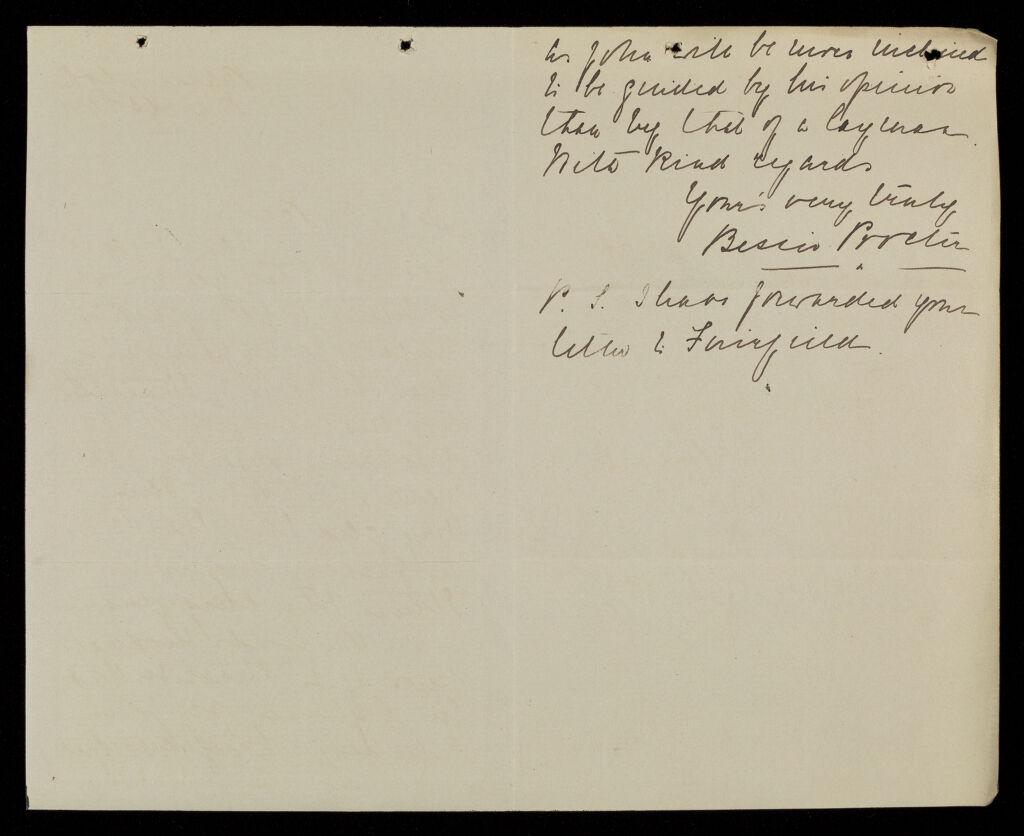 as John will be more inclined
to be guided by his opinion
than by that of a layman.
With kind regards
Your's very truly
Bessie Procter
P. S. I have forwarded your
letter to Fairfield.